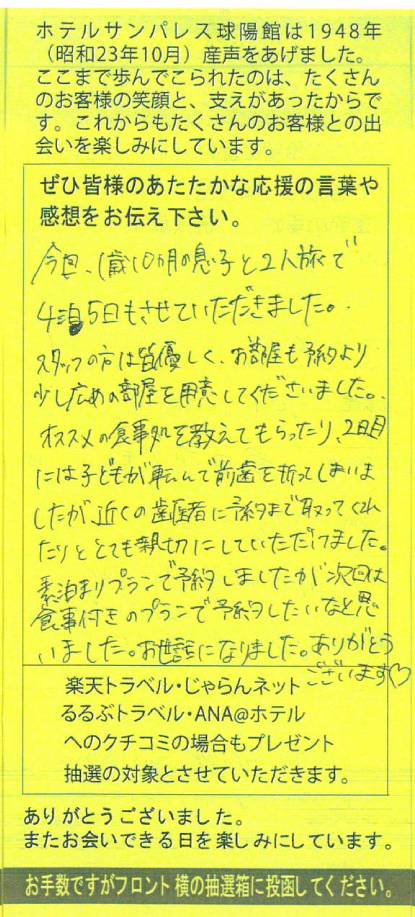 ホテルサンパレス球陽館は1948年
（昭和23年10月）産声をあげました。
ここまで歩んでこられたのは、たくさん
のお客様の笑顔と、支えがあったからで
す。これからもたくさんのお客様との出
会いを楽しみにしています。
ぜひ皆様のあたたかな応援の言葉や
感想をお伝え下さい。
今回、1歳10ヵ月の息子と2人旅で
4泊5日もさせていただきました。
スタッフの方は皆優しく、お部屋も予約より
少し広めの部屋を用意してくださいました。
オススメの食事処を教えてもらったり、2日目
には子どもが転んで前歯を折ってしまいま
したが近くの歯医者に予約まで取ってくれ
たりととても親切にしていただけました。
素泊まりプランで予約しましたが次回は
食事付きのプランで予約したいなと思
いました。お世話になりました。ありがとう
ございます♡
楽天トラベル・じゃらんネット
るるぶトラベル・ANA@ホテル
へのクチコミの場合もプレゼント
抽選の対象とさせていただきます。
ありがとうございました。
またお会いできる日を楽しみにしています。
お手数ですがフロント横の抽選箱に投函してください。